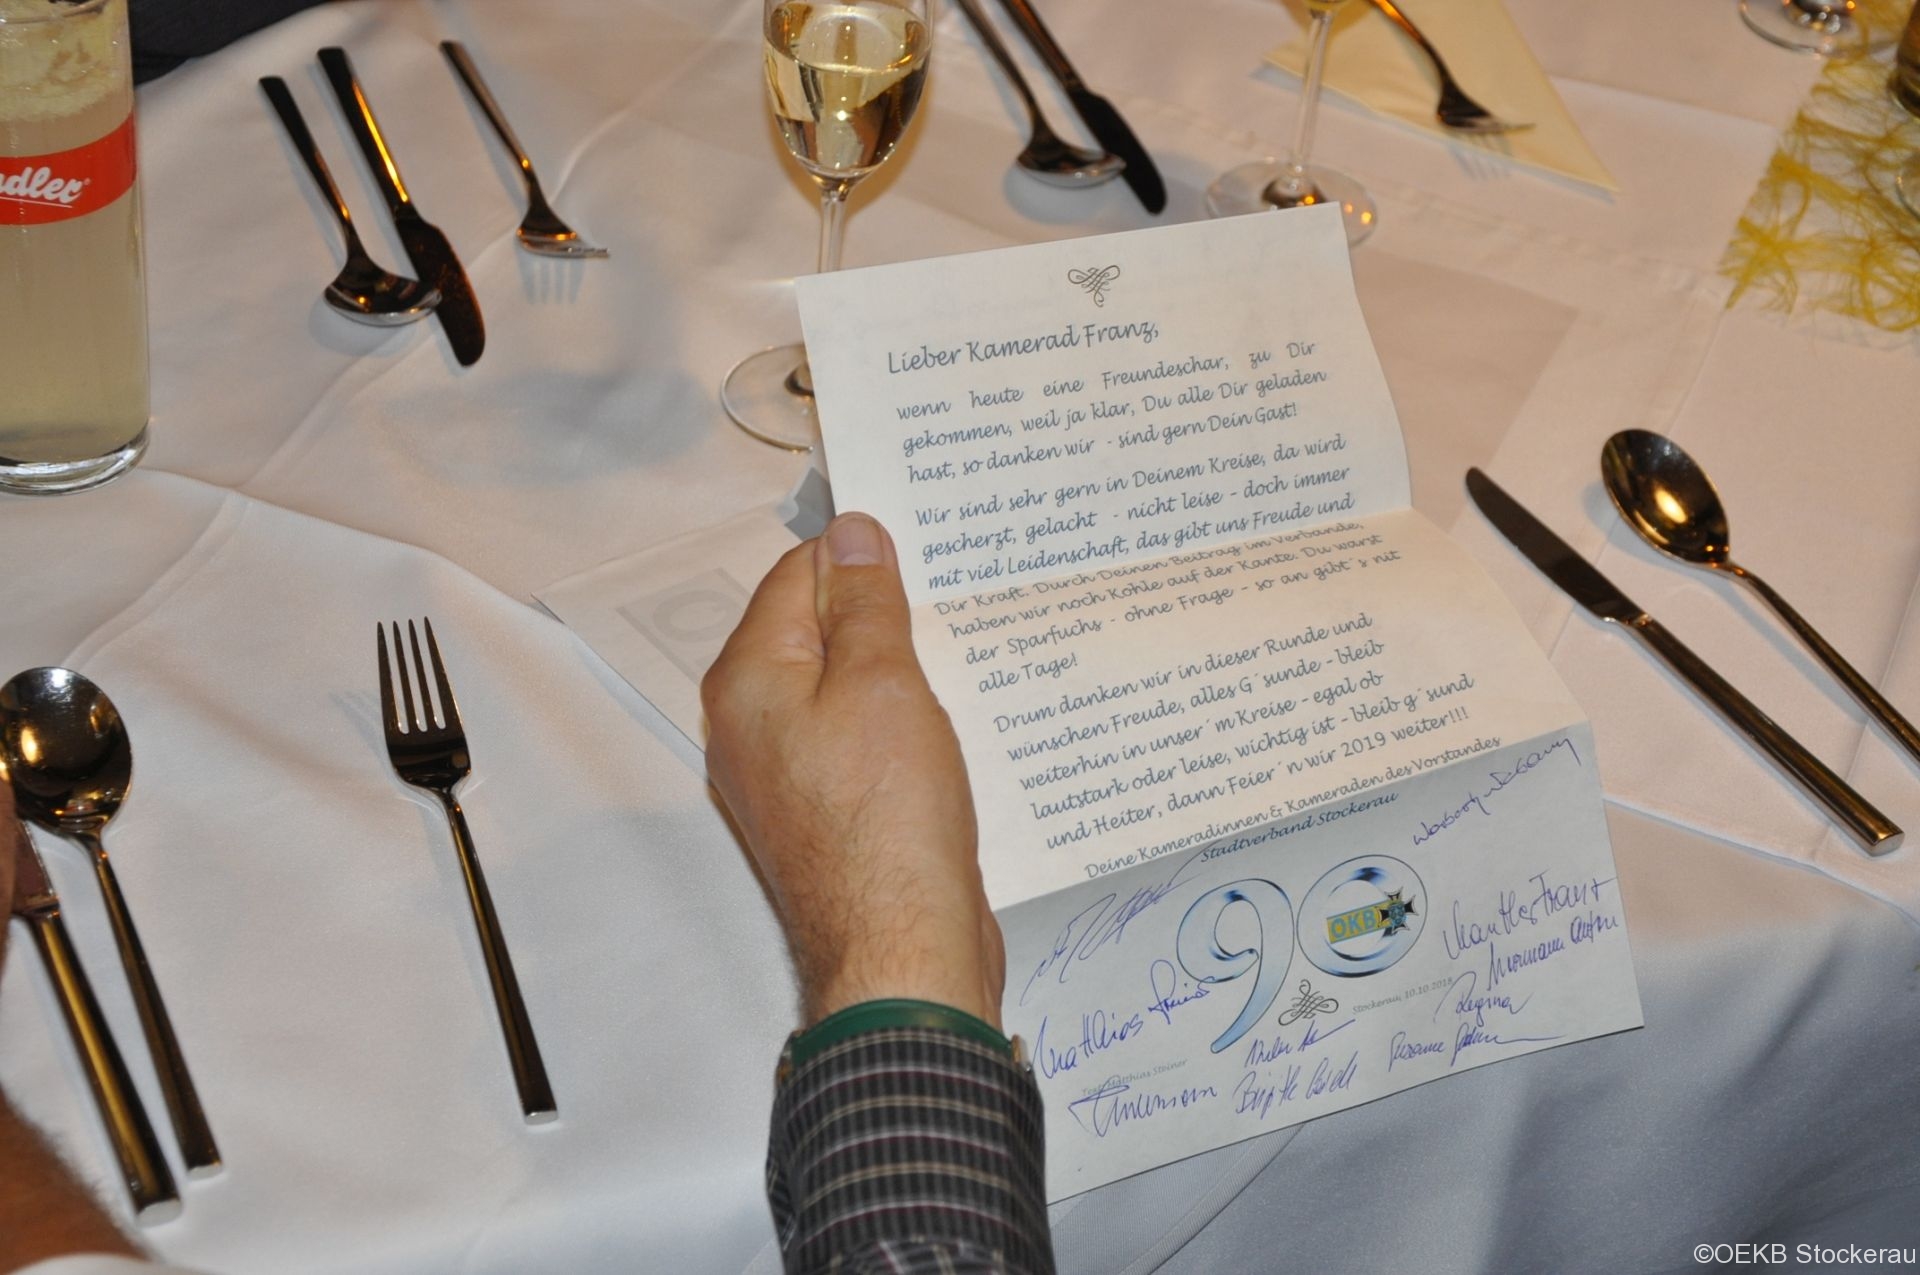 dler
Lieber Kamerad Franz,
wenn heute eine Freundeschar, zu Dir
gekommen, weil ja klar, Du alle Dir geladen
hast, so danken wir - sind gern Dein Gast!
Wir sind sehr gern in Deinem Kreise, da wird
gescherzt, gelacht - nicht leise - doch immer
mit viel Leidenschaft, das gibt uns Freude und
Dir Kraft. Durch Deinen Beitrag im Verbande,
haben wir noch Kohle auf der Kante. Du warst
der Sparfuchs - ohne Frage - so an gibt´s nit
alle Tage!
Drum danken wir in dieser Runde und
wünschen Freude, alles G´sunde - bleib
weiterhin in unser´m Kreise - egal ob
lautstark oder leise, wichtig ist - bleib g´sund
und Heiter, dann Feier´n wir 2019 weiter!!!
Deine Kameradinnen & Kameraden des Vorstandes
Stadtverband Stockerau
90
ÖKB
Stockerau, 10.10.2018
Matthias Steiner
Regina
Text: Matthias Steiner
Birgitte
Susanne
©OEKB Stockerau